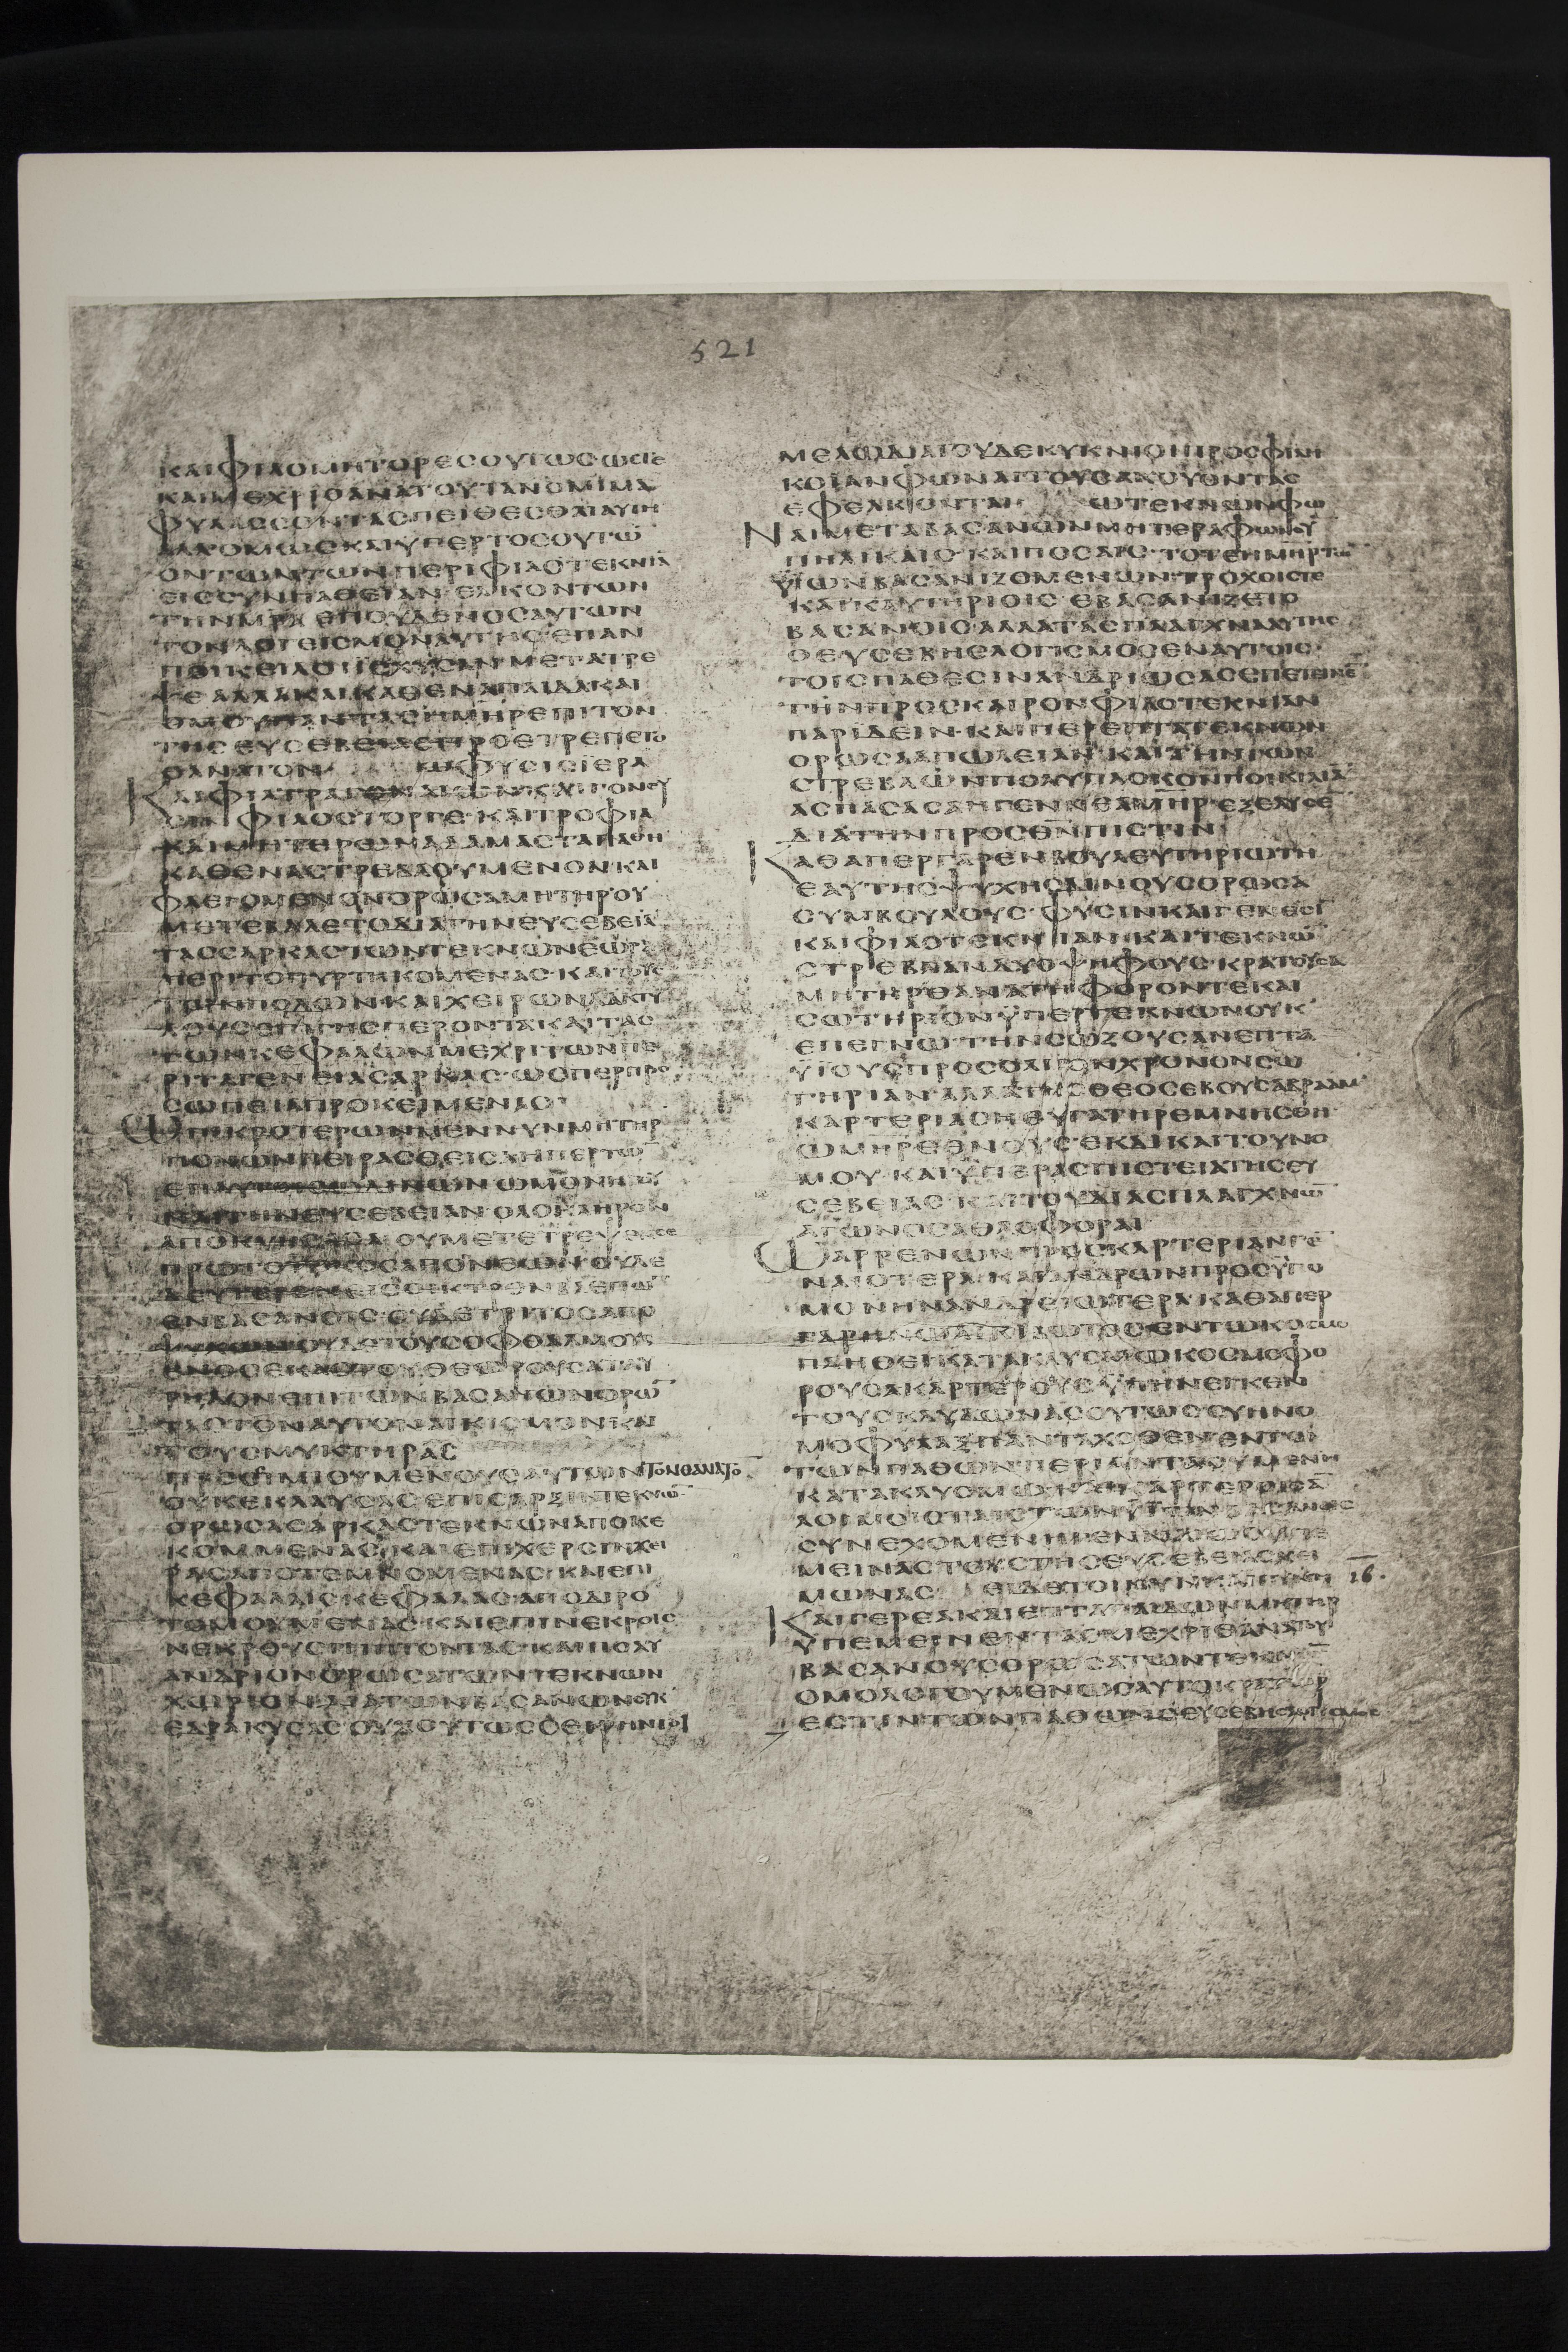 ΚΑΙΦΙΛΟΜΗΤΟΡΕϹΟΥΤΩϹΩϹΤΕ
ΚΑΙΜΕΧΡΙΘΑΝΑΤΟΥΤΑΝΟΜΙΜΑ
ΦΥΛΑϹϹΟΝΤΑϹΠΕΙΘΕϹΘΑΙΑΥΤΗ
ΑΛΛΟΜΩϹΚΑΙΥΠΕΡΤΟϹΟΥΤΩ̅
ΟΝΤΩΝΤΩΝΠΕΡΙΦΙΛΟΤΕΚΝΙΑ̅
ΕΙϹϹΥΝΠΑΘΕΙΑΝΕΛΚΟΝΤΩΝ
ΤΗΝΜΡΑ̅ ΕΠΟΥΔΕΝΟϹΑΥΤΩΝ
ΤΟΝΛΟΓΕΙϹΜΟΝΑΥΤΗϹΕΠΑΝ
ΠΟΙΚΕΙΛΟΙΙϹΧΥϹΑΝΜΕΤΑΤΡΕ
ΨΕΑΛΛΑΚΑΙΚΑΘΕΝΑΠΑΙΔΑΚΑΙ
ΟΜΟΥΠΑΝΤΑϹΗΜ̅Η̅Ρ̅ΕΠΙΤΟΝ
ΤΗϹΕΥϹΕΒΕΙΑϹΠΡΟΕΤΡΕΠΕΤΟ
ΘΑΝΑΤΟΝ ΩΦΥϹΙϹΙΕΡΑ
ΚΑΙΦΙΛΤΡΑΓΟΝΑΙΩΝΚΑΙΓΟΝΕΥ
ϹΙΝΦΙΛΟϹΤΟΡΓΕ·ΚΑΙΤΡΟΦΙΑ
ΚΑΙΜΗΤΕΡΩΝΑΔΑΜΑϹΤΑΠΑΘΗ
ΚΑΘΕΝΑϹΤΡΕΒΛΟΥΜΕΝΟΝΚΑΙ
ΦΛΕΓΟΜΕΝΟΝΟΡΩϹΑΜΗΤΗΡΟΥ
ΜΕΤΕΒΑΛΕΤΟΔΙΑΤΗΝΕΥϹΕΒΕΙΑ̅
ΤΑϹϹΑΡΚΑϹΤΩΝΤΕΚΝΩΝΕΩΡΑ
ΠΕΡΙΤΟΠΥΡΤΗΚΟΜΕΝΑϹ·ΚΑΙΤΟΥϹ
ΤΩΝΠΟΔΩΝΚΑΙΧΕΙΡΩΝΔΑΚΤΥ
ΛΟΥϹΕΠΙΓΗϹΠΕΡΟΝΤΑΚΑΙΤΑϹ
ΤΩΝΚΕΦΑΛΩΝΜΕΧΡΙΤΩΝΠΕ
ΡΙΤΑΓΕΝΕΙΑϹΑΡΚΑϹ·ΩϹΠΕΡΠΡΟ
ϹΩΠΕΙΑΠΡΟΚΕΙΜΕΝΑϹ·
ΩΠΙΚΡΟΤΕΡΩΝΜΕΝΝΥΝΜΗΤΗΡ
ΠΟΝΩΝΠΕΙΡΑϹΘΕΙϹΑΗΠΕΡΤΩ̅
ΕΠΑΥΤΟΙϹΩΔΙΝΩΝΩΜΟΝΗ
ΝΑΙΤΗΝΕΥϹΕΒΕΙΑΝΟΛΟΚΛΗΡΟΝ
ΑΠΟΚΥΗϹΑϹΑΟΥΜΕΤΕΤΡΕΨΕΝϹΕ
ΠΡΩΤΟΤΟΚΟϹΑΠΟΝΕΩΝΟΥΔΕ
ΔΕΥΤΕΡΟΝΕΙϹΟΙΚΤΡΟΝΒΛΕΠΩ̅
ΕΝΒΑϹΑΝΟΙϹ·ΟΥΔΕΤΡΙΤΟϹΑΠΟ
ΨΥΧΩΝΟΥΔΕΤΟΥϹΟΦΘΑΛΜΟΥϹ
ΕΝΟϹΕΚΑϹΤΟΥΘΕΩΡΟΥϹΑΤΑΥ
ΡΗΔΟΝΕΠΙΤΩΝΒΑϹΑΝΩΝΟΡΩ̅
ΤΑϹΤΟΝΑΥΤΟΝΑΙΚΙϹΜΟΝΚΑΙ
ΤΟΥϹΜΥΚΤΗΡΑϹ
ΠΡΟϹΗΜΙΟΥΜΕΝΟΥϹΑΥΤΩΝΤΟΝΘΑΝΑΤΟ̅
ΟΥΚΕΚΛΑΥϹΑϹΕΠΙϹΑΡΞΙΝΤΕΚΝΩ̅
ΟΡΩϹΑϹΑΡΚΑϹΤΕΚΝΩΝΑΠΟΚΕ
ΚΟΜΜΕΝΑϹ·ΚΑΙΕΠΙΧΕΡϹΙΝΧΕΙ
ΡΑϹΑΠΟΤΕΜΝΟΜΕΝΑϹ·ΚΑΙΕΠΙ
ΚΕΦΑΛΑΙϹΚΕΦΑΛΑϹΑΠΟΔΙΡΟ
ΤΟΜΟΥΜΕΝΑϹ·ΚΑΙΕΠΙΝΕΚΡΟΙϹ
ΝΕΚΡΟΥϹΠΙΠΤΟΝΤΑϹ·ΚΑΙΠΟΛΥ
ΑΝΔΡΙΟΝΟΡΩϹΑΤΩΝΤΕΚΝΩΝ
ΧΩΡΙΟΝΔΙΑΤΩΝΒΑϹΑΝΩΝΟΥΚ
ΕΔΑΚΡΥϹΑϹΟΥΧΟΥΤΩϹϹΕΙΡΗΝΙΟΙ
521
ΜΕΛΩΔΙΑΙΟΥΔΕΚΥΚΝΙΟΙΠΡΟϹΦΙΛΗ
ΚΟΙΑΝΦΩΝΑΙΤΟΥϹΑΚΟΥΟΝΤΑϹ
ΕΦΕΛΚΟΝΤΑΙ ΩΤΕΚΝΩΝΦΩ
ΝΑΙΜΕΤΑΒΑϹΑΝΩΝΜΗΤΕΡΑΦΩΝΟΥ
ΠΗΛΙΚΑΙϹ·ΚΑΙΠΟϹΑΙϹ·ΤΟΤΕΗΜΗΤΗΡΤΩ̅
ΥΙΩΝΒΑϹΑΝΙΖΟΜΕΝΩΝΤΡΟΧΟΙϹΤΕ
ΚΑΙΚΑΥΤΗΡΙΟΙϹ·ΕΒΑϹΑΝΙΖΕΤΟ
ΒΑϹΑΝΟΙϹ·ΑΛΛΑΤΑϹΠΛΑΓΧΝΑΑΥΤΗϹ
ΟΕΥϹΕΒΗϹΛΟΓΙϹΜΟϹΕΝΑΥΤΟΙϹ·
ΤΟΙϹΠΑΘΕϹΙΝΑΝΔΡΙΩϹΑϹΕΠΕΤΕΙΝΕ̅
ΤΗΝΠΡΟϹΚΑΙΡΟΝΦΙΛΟΤΕΚΝΙΑΝ
ΠΑΡΙΔΕΙΝ·ΚΑΙΠΕΡΕΠΤΑΤΕΚΝΩΝ
ΟΡΩϹΑΑΠΩΛΕΙΑΝ·ΚΑΙΤΗΝΤΩΝ
ϹΤΡΕΒΛΩΝΠΟΛΥΠΛΟΚΟΝΠΟΙΚΙΛΙΑ̅
ΑϹΠΑϹΑϹΑΗΓΕΝΝΑΙΑΜ̅Η̅Ρ̅·ΕΞΕΛΥϹΕ̅
ΔΙΑΤΗΝΠΡΟϹΘ̅Ν̅ΠΙϹΤΙΝ
ΚΑΘΑΠΕΡΓΑΡΕΝΒΟΥΛΕΥΤΗΡΙΩΤΗ
ΕΑΥΤΗϹΨΥΧΗϹΔΙΝΟΥϹΟΡΩϹΑ
ϹΥΜΒΟΥΛΟΥϹ·ΦΥϹΙΝΚΑΙΓΕΝΕϹΙ̅
ΚΑΙΦΙΛΟΤΕΚΝΙΑΝ·ΚΑΙΤΕΚΝΩ̅
ϹΤΡΕΒΛΑΝΔΥΟΨΗΦΟΥϹ·ΚΡΑΤΟΥϹΑ
ΜΗΤΗΡΘΑΝΑΤΗΦΟΡΟΝΤΕΚΑΙ
ϹΩΤΗΡΙΟΝΥΠΕΡΤΕΚΝΩΝΟΥΚ
ΕΠΕΓΝΩΤΗΝϹΩΖΟΥϹΑΝΕΠΤΑ
ΥΙΟΥϹΠΡΟϹΟΛΙΓΟΝΧΡΟΝΟΝϹΩ
ΤΗΡΙΑΝΑΛΛΑΤΗϹΘΕΟϹΕΒΟΥϹΑΒΡΑΑΜ
ΚΑΡΤΕΡΙΑϹΗΘΥΓΑΤΗΡΕΜΝΗϹΘΗ
ΩΜ̅Η̅Ρ̅ΕΘΝΟΥϹ·ΕΚΔΙΚΑΙΤΟΥΝΟ
ΜΟΥ·ΚΑΙΥΠΕΡΑϹΠΙϹΤΕΙΑΤΗϹΕΥ
ϹΕΒΕΙΑϹ·ΚΑΙΤΟΥΔΙΑϹΠΛΑΓΧΝΩ̅
ΑΓΩΝΟϹΑΘΛΟΦΟΡΑΙ
ΩΑΡΡΕΝΩΝΠΡΟϹΚΑΡΤΕΡΙΑΝΓΕ̅
ΝΑΙΟΤΕΡΑ·ΚΑΙΑΝΔΡΩΝΠΡΟϹΥΠΟ
ΜΟΝΗΝΑΝΔΡΕΙΩΤΕΡΑ·ΚΑΘΑΠΕΡ
ΓΑΡΗΝΩΑΙΚΙΒΩΤΟϹΕΝΤΩΚΟϹΜΟ
ΠΛΗΘΕΙΚΑΤΑΚΛΥϹΜΩΚΟϹΜΟΦΟ
ΡΟΥϹΑΚΑΡΤΕΡΟΥϹΥΠΗΝΕΓΚΕΝ
ΤΟΥϹΚΛΥΔΩΝΑϹΟΥΤΩϹϹΥΗΝΟ
ΜΟΦΥΛΑΞΠΑΝΤΑΧΟΘΕΝΕΝΤΩ
ΤΩΝΠΑΘΩΝΠΕΡΙΑΝΤΛΟΥΜΕΝΗ
ΚΑΤΑΚΛΥϹΜΩ
ϹΥΝΕΧΟΜΕΝΗ
ΜΕΙΝΑϹΤΟΥϹΤΗϹΕΥϹΕΒΕΙΑϹΧΕΙ
ΜΩΝΑϹ 16.
ΚΑΙΓΕΡΕΑΚΑΙΕΠΤΑΠΑΙΔΩΝΜΗΤΗΡ
ΥΠΕΜΕΙΝΕΝΤΑϹΜΕΧΡΙΘΑΝΑΤΟΥ
ΒΑϹΑΝΟΥϹΟΡΩϹΑΤΩΝΤΕΚΝΩ̅
ΟΜΟΛΟΓΟΥΜΕΝΩϹΑΥΤΟΚΡΑΤΩΡ
ΕϹΤΙΝΤΩΝΠΑΘΩΝΟΕΥϹΕΒΗϹΛΟΓΙϹΜΟϹ